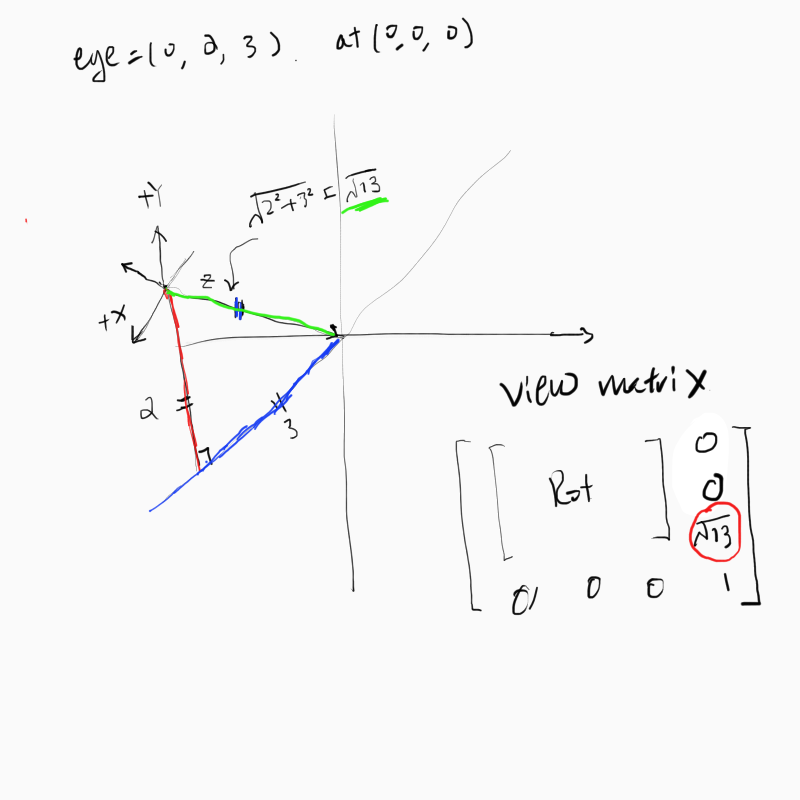 eye=(0, 2, 3). at (0, 0, 0)
√2²+3² = √13
+Y
z
+X
2
3
view matrix
0
Rot 0
√13
0 0 0 1